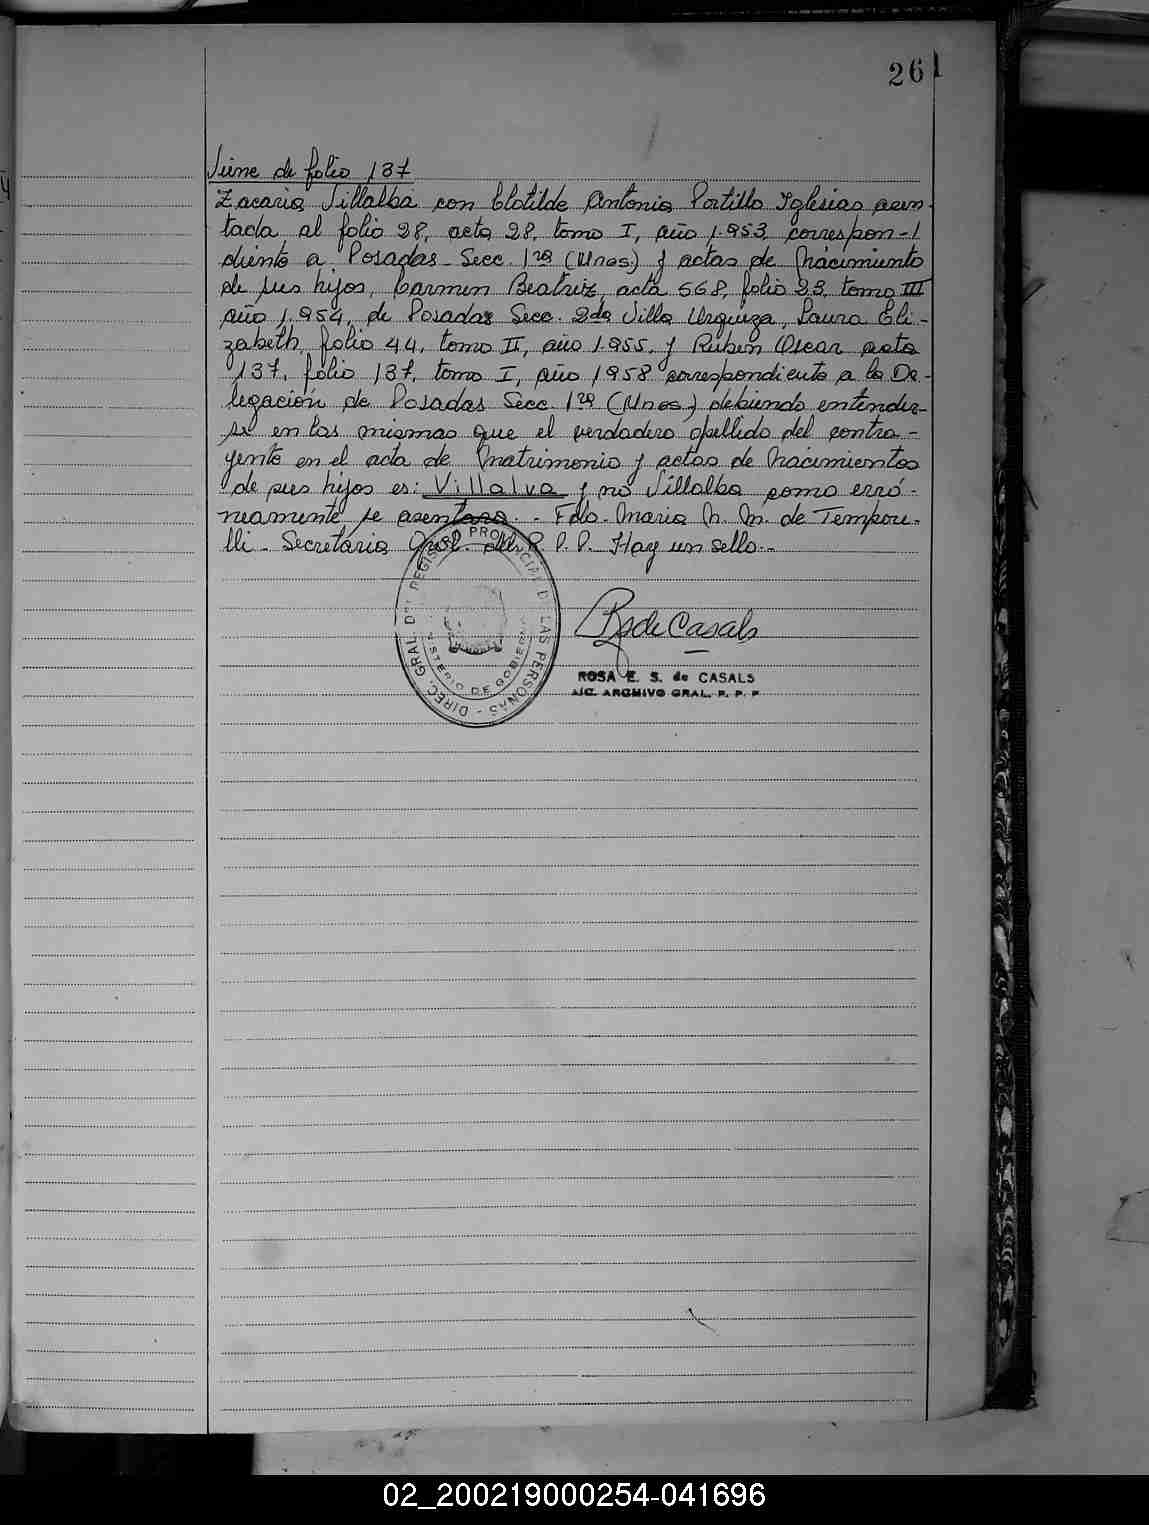 261
Viene de folio 137
Zacarias Villalba con Clotilde Antonia Portillo Iglesias asen-
tada al folio 28, acta 28, tomo I, año 1.953, correspon-
diente a Posadas - Secc. 1ra (Mnes.) y actas de Nacimiento
de sus hijos, Carmen Beatriz, acta 568, folio 23, tomo III
año 1.954, de Posadas Secc. 2da Villa Urquiza, Laura Eli-
zabeth, folio 44, tomo II, año 1.955, y Ruben Oscar acta
137, folio 137, tomo I, año 1958 correspondiente a la De-
legación de Posadas Secc. 1ra (Mnes.) debiendo entender-
se en las mismas que el verdadero apellido del contra-
yente en el acta de Matrimonio y actas de Nacimientos
de sus hijos es: Villalva y no Villalba como erró-
neamente se asentara. - Fdo. Maria N. M. de Tempore-
lli - Secretaria Gral. del R. P. P. Hay un sello.-
DIREC. GRAL. DEL REGISTRO PROVINCIAL DE LAS PERSONAS
MINISTERIO DE GOBIERNO
R. de Casals
ROSA E. S. de CASALS
A/C. ARCHIVO GRAL. R. P. P
02_200219000254-041696